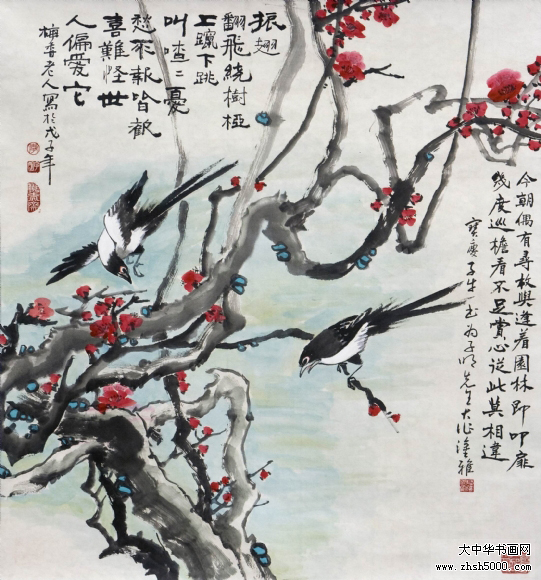 振翅
翻飛繞樹椏
上躥下跳
叫喳二憂
愁不報皆歡
喜難怪世
人偏愛它
梅香老人寫於戊子年
今朝偶有尋枚與逢着園林即叩扉
幾度巡檐看不足賞心從此莫相違
寶慶子牛一玉為子明先生大作塗雅
大中华书画网
www.zhsh5000.com